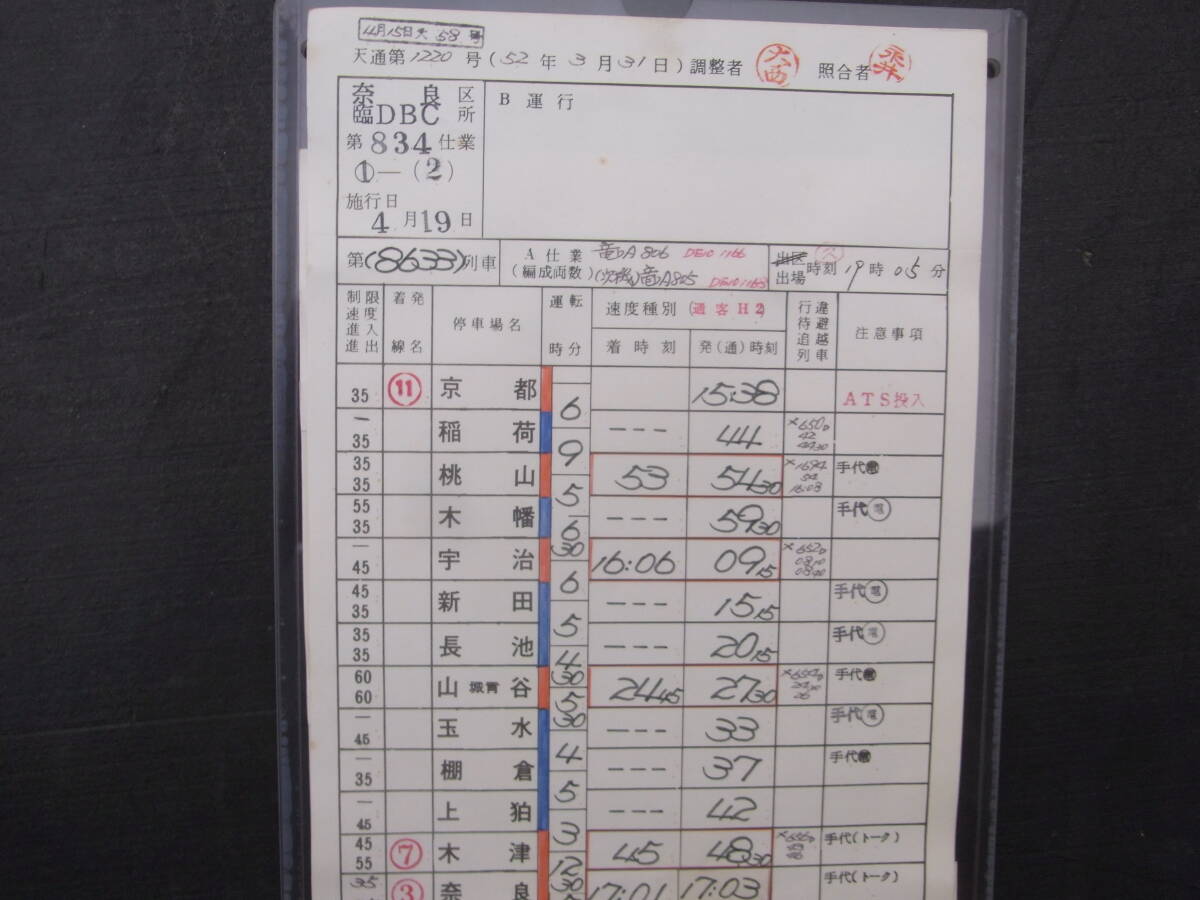 4月15日大58号
天通第1220号(52年3月31日)調整者 大西 照合者 永井
奈良区
臨DBC所
第834仕業
①—(2)
施行日
4月19日
B運行
第(8633)列車
A仕業 竜A806 DE10 1166
(編成両数)(次機)竜A805
出区
出場 時刻 19時05分
制限速度進入進出 着発線名 停車場名 運転時分 速度種別(通客H2) 行違待避追越列車 注意事項
着時刻 発(通)時刻
35 ⑪ 京都 15:38 ATS投入
6
— 35 稲荷 --- 44 ×650D 42 4430
9
35 35 桃山 53 5430 ×1694 54 16:03 手代
5
55 35 木幡 --- 5930 手代電
6 30
— 45 宇治 16:06 0915 ×652D 0810 0840
6
45 35 新田 --- 1515 手代電
5
35 35 長池 --- 2015 手代電
4 30
60 60 山城青谷 2445 2730 手代
5 30
— 45 玉水 --- 33 手代電
4
— 35 棚倉 --- 37 手代
5
— 45 上狛 --- 42
3
45 55 ⑦ 木津 45 4830 ×656D 手代(トーク)
12 30
35 ③ 奈良 17:01 17:03 手代(トーク)